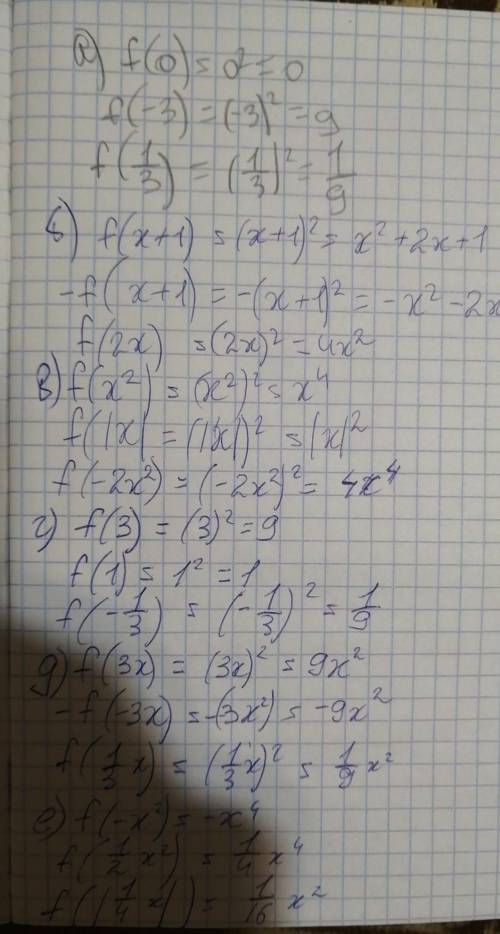 а) f(0) = 0² = 0
f(-3) = (-3)² = 9
f(1/3) = (1/3)² = 1/9
б) f(x+1) = (x+1)² = x² + 2x + 1
-f(x+1) = -(x+1)² = -x² - 2x
f(2x) = (2x)² = 4x²
в) f(x²) = (x²)² = x⁴
f(|x| = (|x|)² = |x|²
f(-2x²) = (-2x²)² = 4x⁴
г) f(3) = (3)² = 9
f(1) = 1² = 1
f(-1/3) = (-1/3)² = 1/9
д) f(3x) = (3x)² = 9x²
-f(-3x) = -(3x²) = -9x²
f(1/3 x) = (1/3 x)² = 1/9 x²
е) f(-x²) = -x⁴
f(1/2 x²) = 1/4 x⁴
f(|1/4 x|) = 1/16 x²